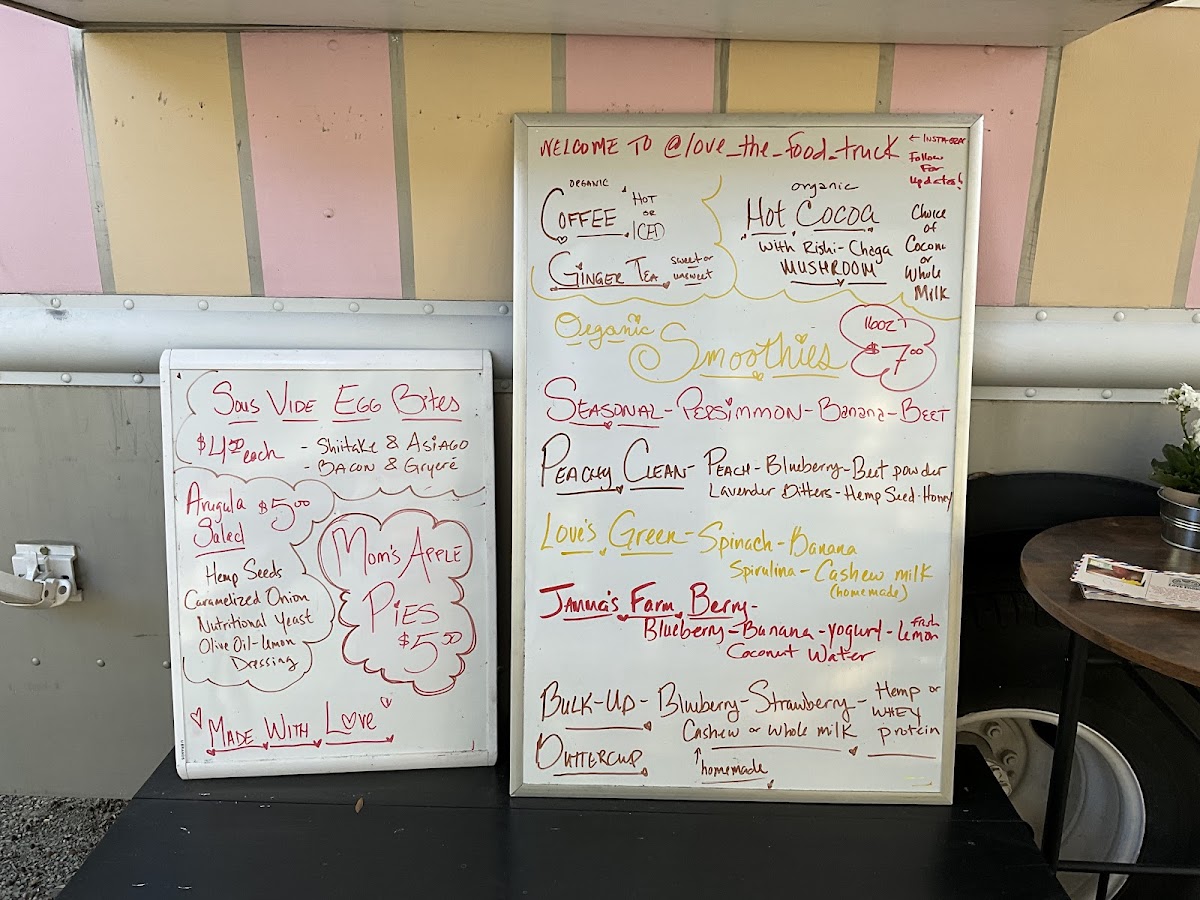 Sous Vide Egg Bites
$4.50 each
- Shiitake & Asiago
- Bacon & Gryeré
Arugula
Salad
$5.00
Hemp Seeds
Caramelized Onion
Nutritional Yeast
Olive Oil-lemon
Dressing
Mom's Apple
Pies
$5.50
Made With Love
WELCOME TO @love_the_food_truck
← INSTAGRAM
Follow
For
Updates!
ORGANIC
COFFEE
HOT
or
ICED
GINGER TEA
sweet or
unsweet
organic
Hot Cocoa
with Rishi-Chaga
MUSHROOM
Choice
of
Coconut
or
Whole
Milk
Organic
Smoothies
16oz
$7.00
SEASONAL - PERSIMMON - Banana - BEET
PEACHY CLEAN - PEACH - Blueberry - Beet powder
Lavender Bitters - Hemp Seed - Honey
Love's Green - Spinach - Banana
Spirulina - Cashew milk
(homemade)
Farm Berry -
Blueberry - Banana - yogurt - fresh Lemon
Coconut Water
BULK-UP - Blueberry - Strawberry - Hemp or
BUTTERCUP
Cashew or whole milk
WHEY
protein
↑ homemade